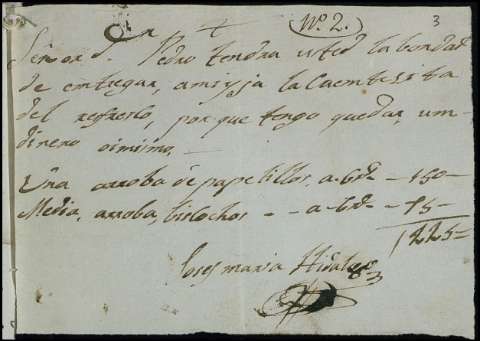 Nº. 2. 3
Señor Dn. Pedro tendra usted la bondad
de entregar, a mi yja la Cuentesita
del refresco, porque tengo que dar, un
dinero oi mismo. —
Una arroba de papelillos, a 6 rs — 150 —
Media, arroba, biscochos — a 6 rs — 75 —
1225 —
Josef maria Hidalgo